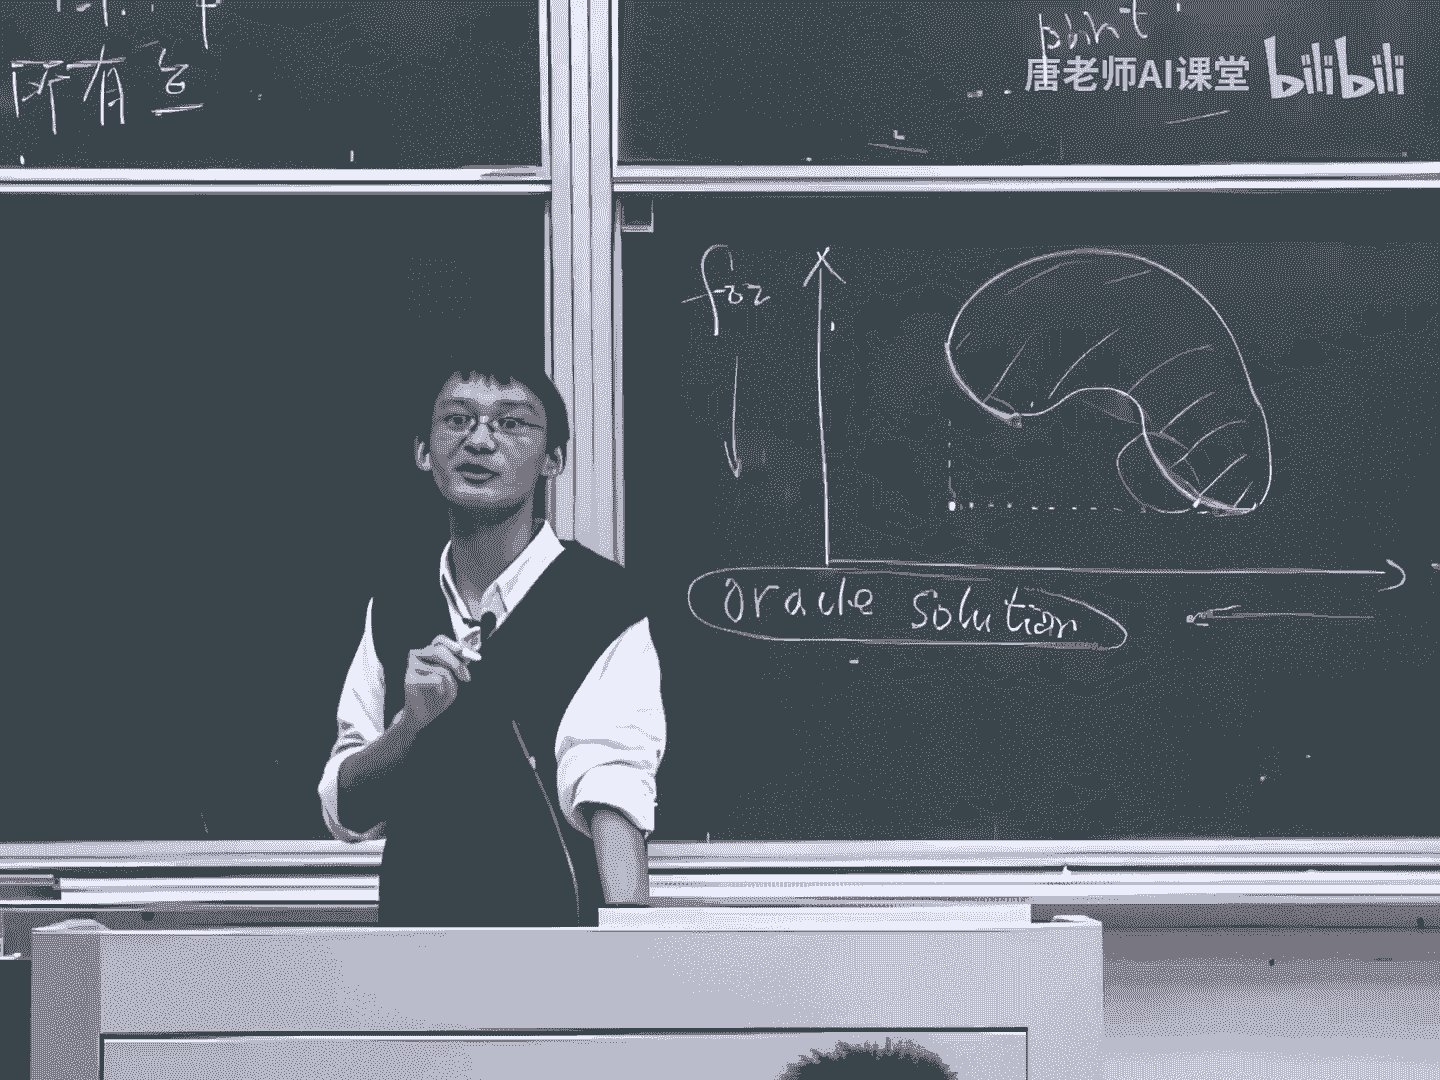 所有
point
唐老师AI课堂 bilibili
oracle solution